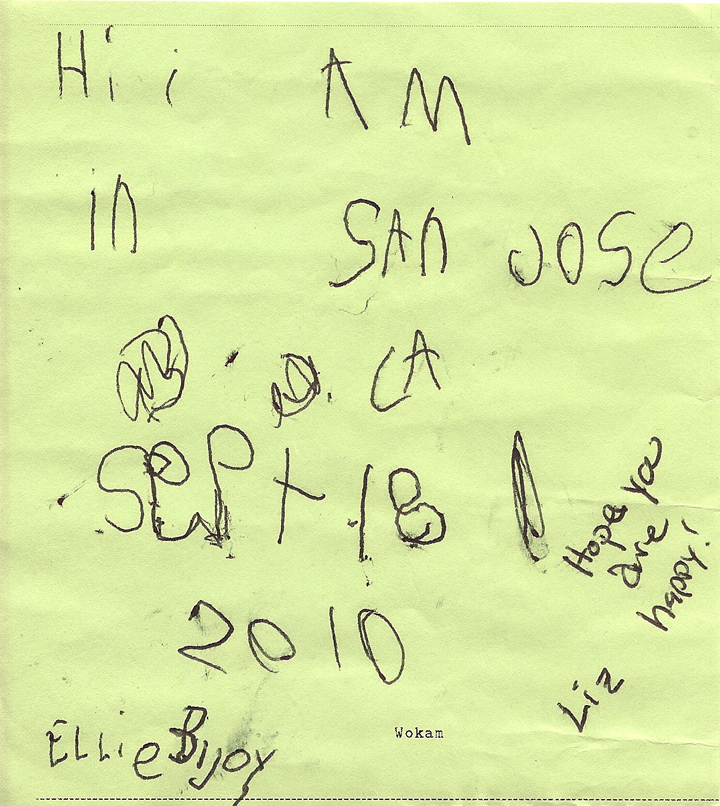 Hi i AM
in SAN JOSE
CA
SEPT 18
2010
Hope you
are
happy!
Liz
Wokam
ELLie Bijoy